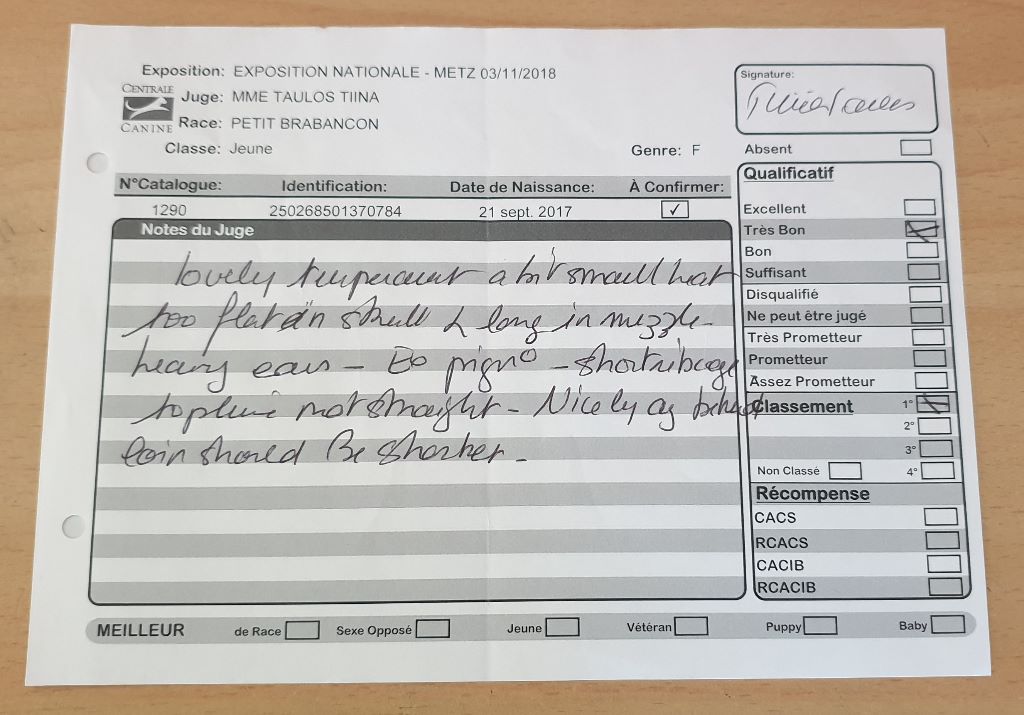 Exposition: EXPOSITION NATIONALE - METZ 03/11/2018
CENTRALE CANINE
Juge: MME TAULOS TIINA
Race: PETIT BRABANCON
Classe: Jeune Genre: F
Signature:
Absent
N°Catalogue: Identification: Date de Naissance: À Confirmer:
1290 250268501370784 21 sept. 2017 ✓
Notes du Juge
lovely a bit small
too flat in skull & long in muzzle
heavy ears - - short ribcage
topline not straight - Nicely
loin should Be shorter -
Qualificatif
Excellent
Très Bon
Bon
Suffisant
Disqualifié
Ne peut être jugé
Très Prometteur
Prometteur
Assez Prometteur
Classement 1°
2°
3°
Non Classé 4°
Récompense
CACS
RCACS
CACIB
RCACIB
MEILLEUR de Race Sexe Opposé Jeune Vétéran Puppy Baby